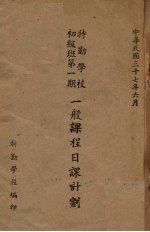 中華民國三十七年六月
特勤學校
初級班第一期
一般課程日課計劃
特勤學校編印